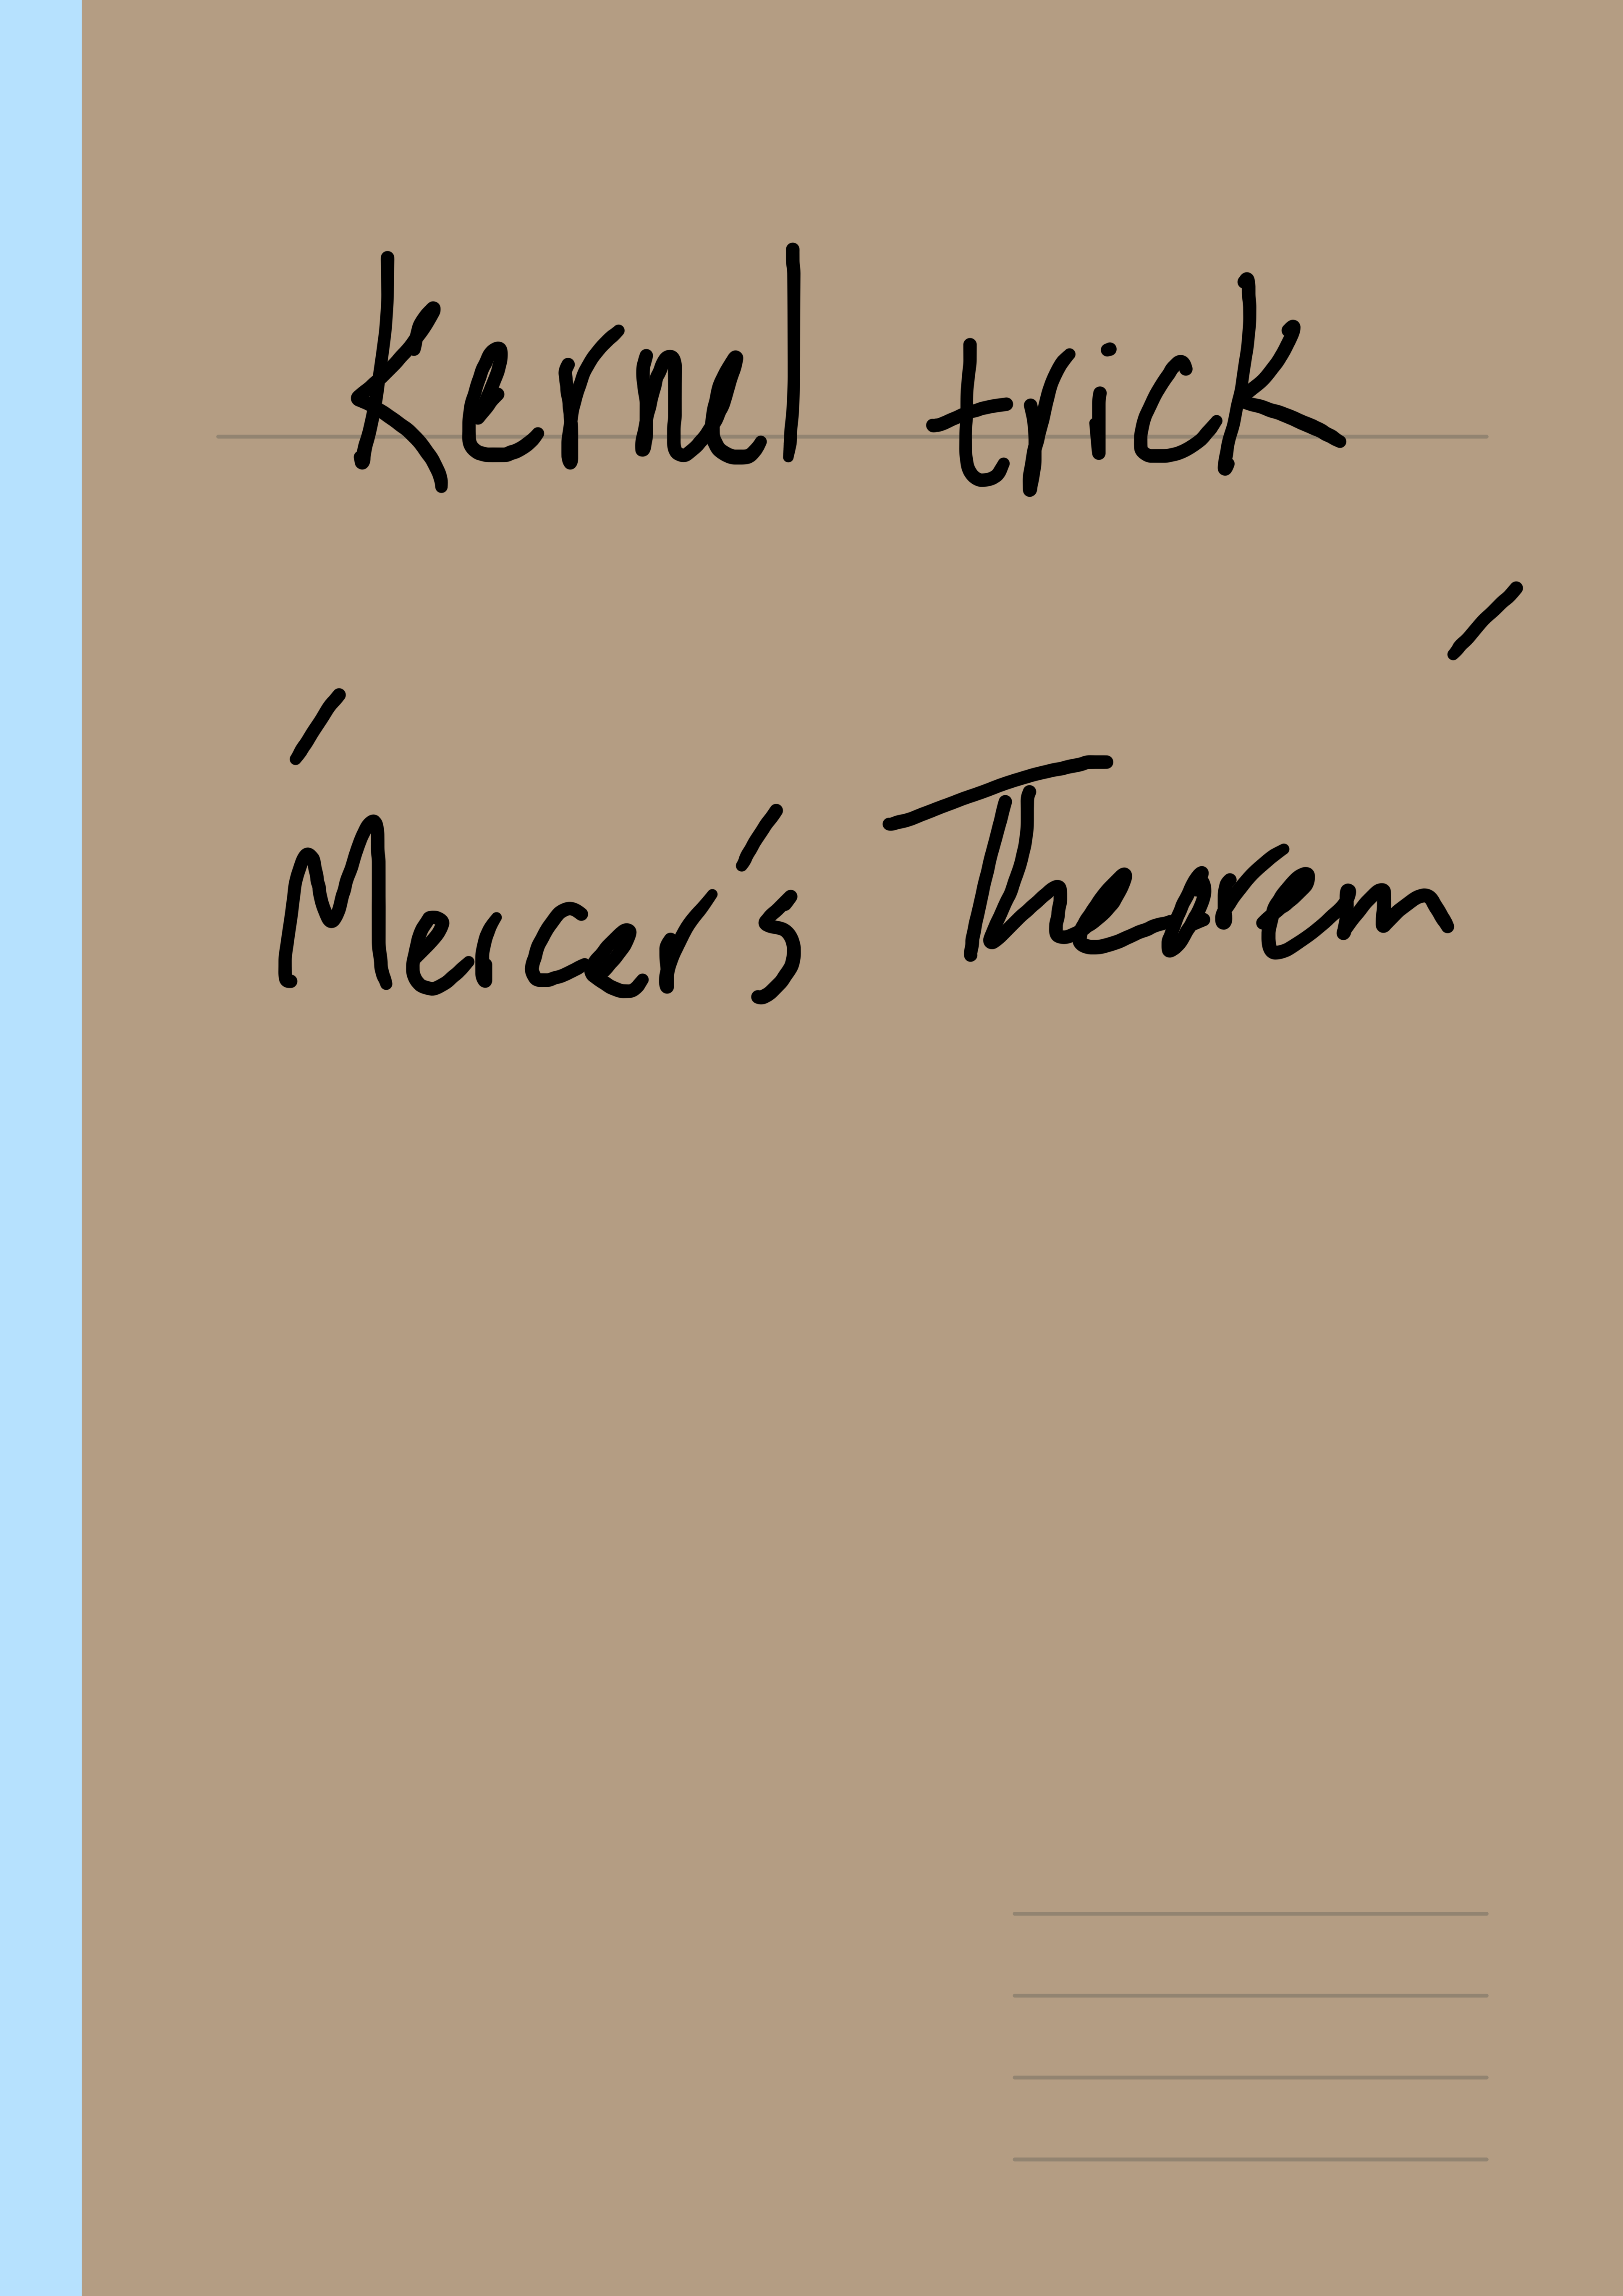 Kernel trick
'Mercer's Theorem'